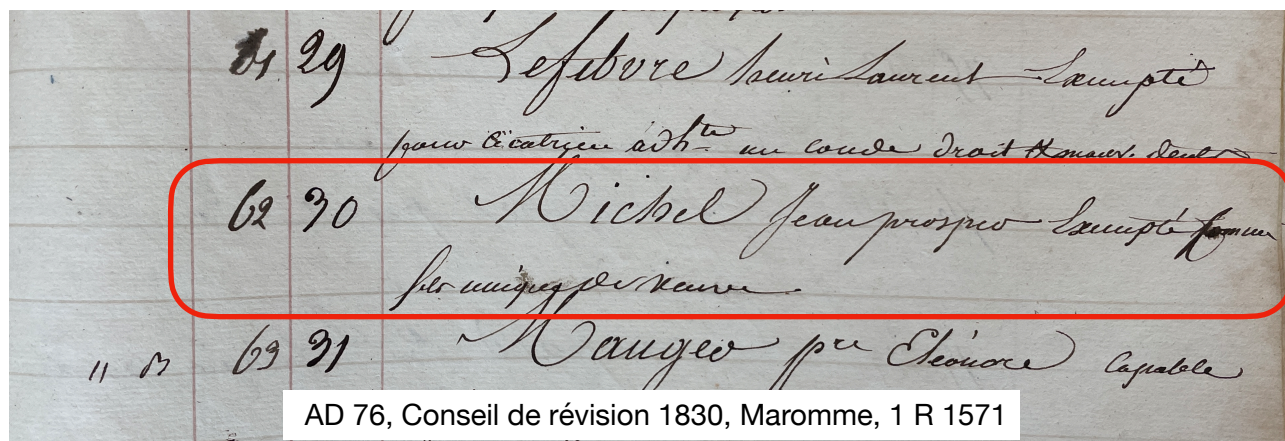 61 29 Lefebvre henri Laurent Exempté
pour Cicatrice adh.te au coude droit & mauv. dents
62 30 Michel Jean prosper Exempté comme
fils unique de veuve.
11 63 31 Mauger pre Eléonore Capable
AD 76, Conseil de révision 1830, Maromme, 1 R 1571